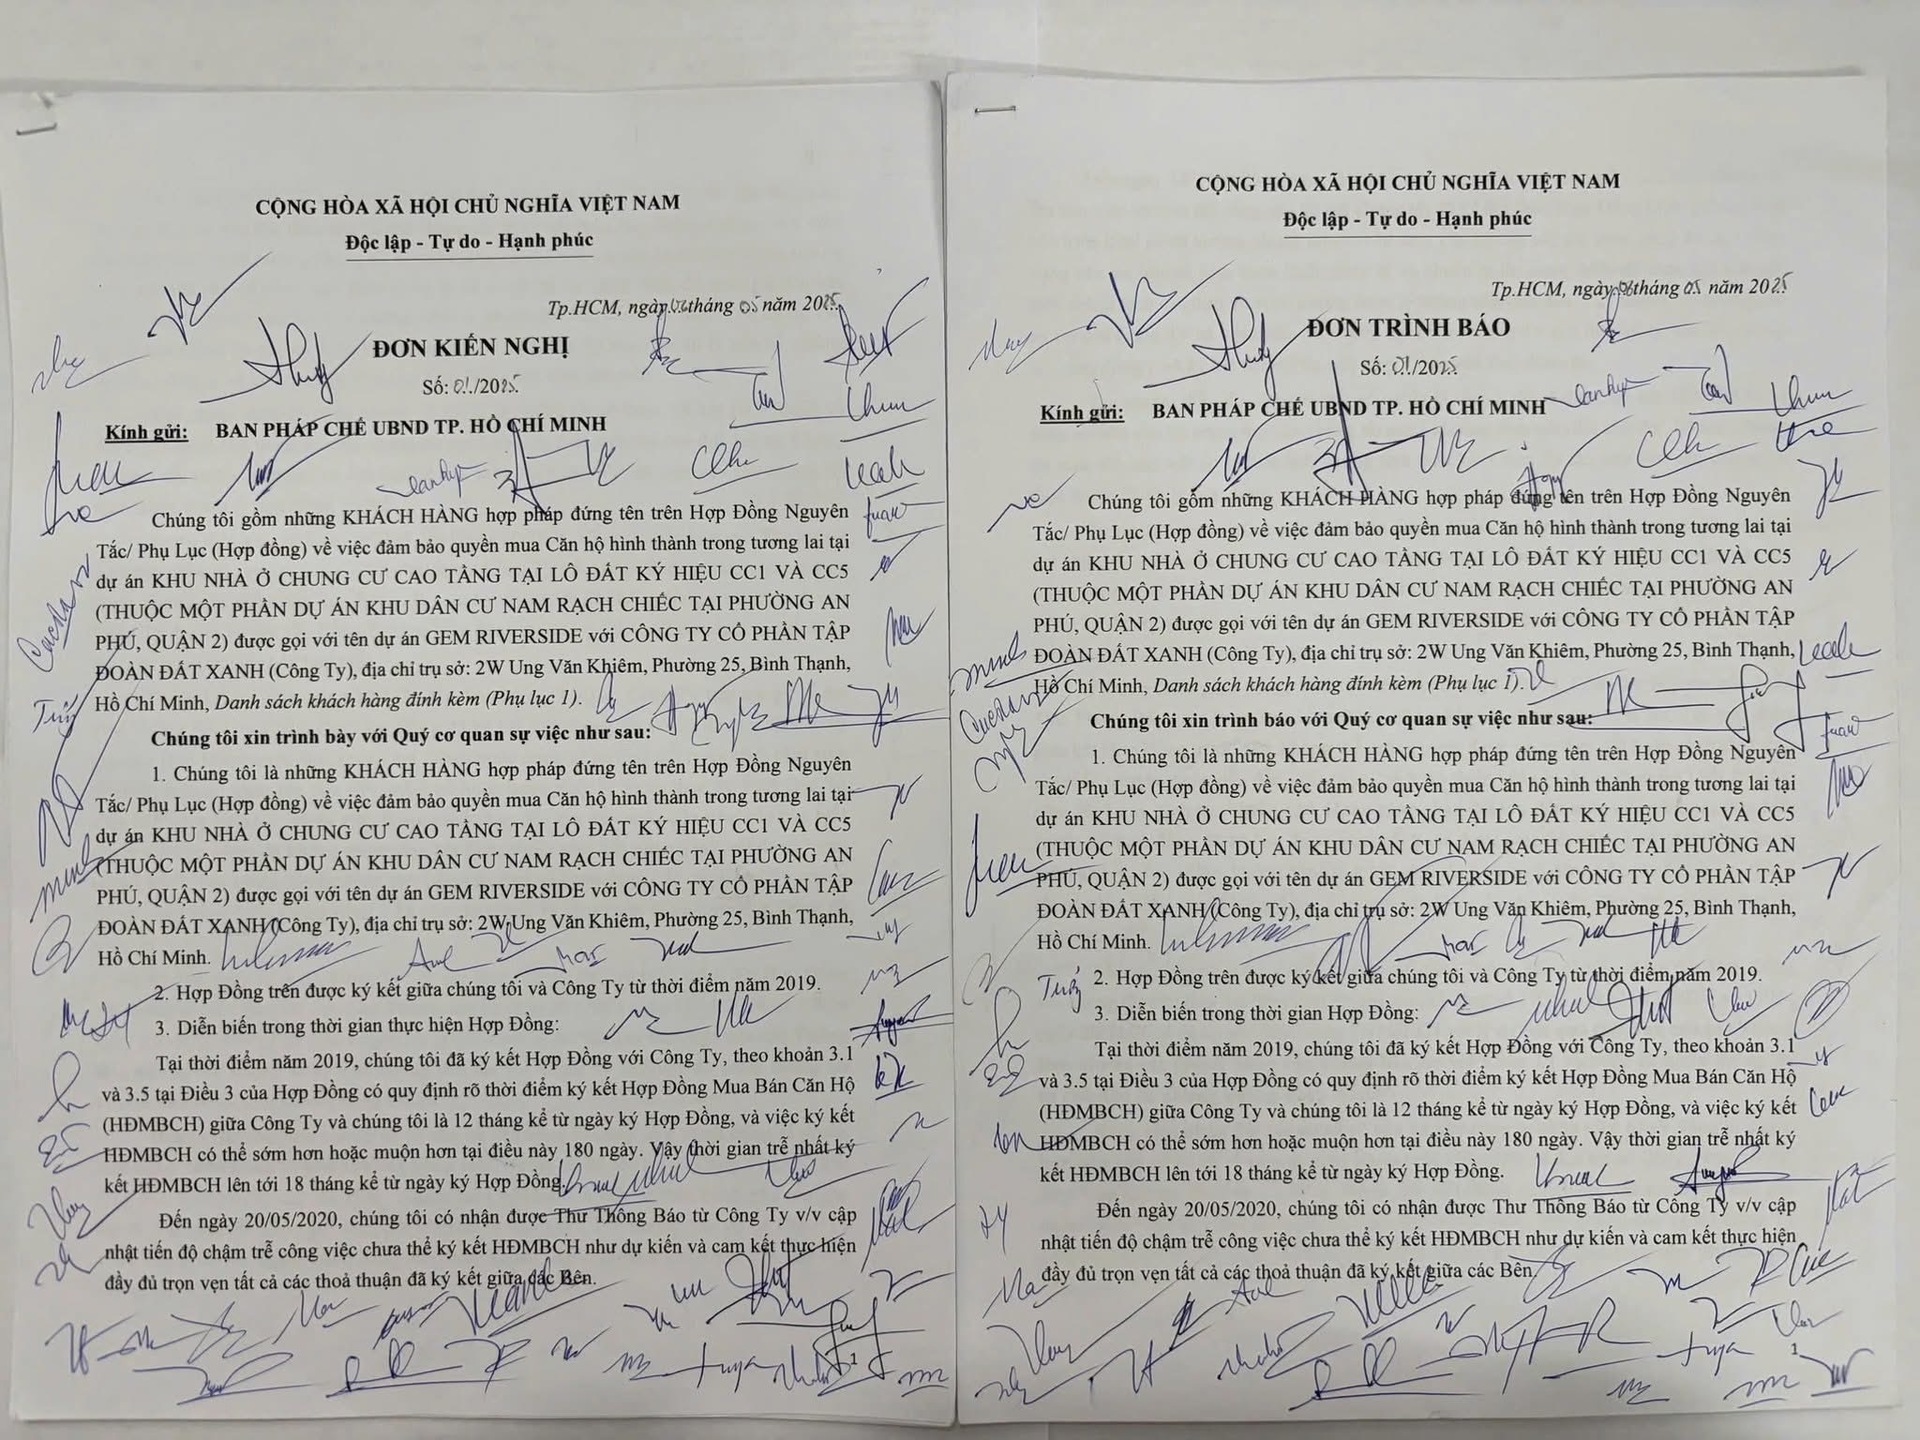 CỘNG HÒA XÃ HỘI CHỦ NGHĨA VIỆT NAM
Độc lập - Tự do - Hạnh phúc
Tp.HCM, ngày 06 tháng 05 năm 2025
ĐƠN KIẾN NGHỊ
Số: 01/2025
Kính gửi: BAN PHÁP CHẾ UBND TP. HỒ CHÍ MINH
Chúng tôi gồm những KHÁCH HÀNG hợp pháp đứng tên trên Hợp Đồng Nguyên
Tắc/ Phụ Lục (Hợp đồng) về việc đảm bảo quyền mua Căn hộ hình thành trong tương lai tại
dự án KHU NHÀ Ở CHUNG CƯ CAO TẦNG TẠI LÔ ĐẤT KÝ HIỆU CC1 VÀ CC5
(THUỘC MỘT PHẦN DỰ ÁN KHU DÂN CƯ NAM RẠCH CHIẾC TẠI PHƯỜNG AN
PHÚ, QUẬN 2) được gọi với tên dự án GEM RIVERSIDE với CÔNG TY CỔ PHẦN TẬP
ĐOÀN ĐẤT XANH (Công Ty), địa chỉ trụ sở: 2W Ung Văn Khiêm, Phường 25, Bình Thạnh,
Hồ Chí Minh, Danh sách khách hàng đính kèm (Phụ lục 1).
Chúng tôi xin trình bày với Quý cơ quan sự việc như sau:
1. Chúng tôi là những KHÁCH HÀNG hợp pháp đứng tên trên Hợp Đồng Nguyên
Tắc/ Phụ Lục (Hợp đồng) về việc đảm bảo quyền mua Căn hộ hình thành trong tương lai tại
dự án KHU NHÀ Ở CHUNG CƯ CAO TẦNG TẠI LÔ ĐẤT KÝ HIỆU CC1 VÀ CC5
(THUỘC MỘT PHẦN DỰ ÁN KHU DÂN CƯ NAM RẠCH CHIẾC TẠI PHƯỜNG AN
PHÚ, QUẬN 2) được gọi với tên dự án GEM RIVERSIDE với CÔNG TY CỔ PHẦN TẬP
ĐOÀN ĐẤT XANH (Công Ty), địa chỉ trụ sở: 2W Ung Văn Khiêm, Phường 25, Bình Thạnh,
Hồ Chí Minh.
2. Hợp Đồng trên được ký kết giữa chúng tôi và Công Ty từ thời điểm năm 2019.
3. Diễn biến trong thời gian thực hiện Hợp Đồng:
Tại thời điểm năm 2019, chúng tôi đã ký kết Hợp Đồng với Công Ty, theo khoản 3.1
và 3.5 tại Điều 3 của Hợp Đồng có quy định rõ thời điểm ký kết Hợp Đồng Mua Bán Căn Hộ
(HĐMBCH) giữa Công Ty và chúng tôi là 12 tháng kể từ ngày ký Hợp Đồng, và việc ký kết
HĐMBCH có thể sớm hơn hoặc muộn hơn tại điều này 180 ngày. Vậy thời gian trễ nhất ký
kết HĐMBCH lên tới 18 tháng kể từ ngày ký Hợp Đồng.
Đến ngày 20/05/2020, chúng tôi có nhận được Thư Thông Báo từ Công Ty v/v cập
nhật tiến độ chậm trễ công việc chưa thể ký kết HĐMBCH như dự kiến và cam kết thực hiện
đầy đủ trọn vẹn tất cả các thoả thuận đã ký kết giữa các Bên.
1
CỘNG HÒA XÃ HỘI CHỦ NGHĨA VIỆT NAM
Độc lập - Tự do - Hạnh phúc
Tp.HCM, ngày 06 tháng 05 năm 2025
ĐƠN TRÌNH BÁO
Số: 01/2025
Kính gửi: BAN PHÁP CHẾ UBND TP. HỒ CHÍ MINH
Chúng tôi gồm những KHÁCH HÀNG hợp pháp đứng tên trên Hợp Đồng Nguyên
Tắc/ Phụ Lục (Hợp đồng) về việc đảm bảo quyền mua Căn hộ hình thành trong tương lai tại
dự án KHU NHÀ Ở CHUNG CƯ CAO TẦNG TẠI LÔ ĐẤT KÝ HIỆU CC1 VÀ CC5
(THUỘC MỘT PHẦN DỰ ÁN KHU DÂN CƯ NAM RẠCH CHIẾC TẠI PHƯỜNG AN
PHÚ, QUẬN 2) được gọi với tên dự án GEM RIVERSIDE với CÔNG TY CỔ PHẦN TẬP
ĐOÀN ĐẤT XANH (Công Ty), địa chỉ trụ sở: 2W Ung Văn Khiêm, Phường 25, Bình Thạnh,
Hồ Chí Minh, Danh sách khách hàng đính kèm (Phụ lục 1).
Chúng tôi xin trình báo với Quý cơ quan sự việc như sau:
1. Chúng tôi là những KHÁCH HÀNG hợp pháp đứng tên trên Hợp Đồng Nguyên
Tắc/ Phụ Lục (Hợp đồng) về việc đảm bảo quyền mua Căn hộ hình thành trong tương lai tại
dự án KHU NHÀ Ở CHUNG CƯ CAO TẦNG TẠI LÔ ĐẤT KÝ HIỆU CC1 VÀ CC5
(THUỘC MỘT PHẦN DỰ ÁN KHU DÂN CƯ NAM RẠCH CHIẾC TẠI PHƯỜNG AN
PHÚ, QUẬN 2) được gọi với tên dự án GEM RIVERSIDE với CÔNG TY CỔ PHẦN TẬP
ĐOÀN ĐẤT XANH (Công Ty), địa chỉ trụ sở: 2W Ung Văn Khiêm, Phường 25, Bình Thạnh,
Hồ Chí Minh.
2. Hợp Đồng trên được ký kết giữa chúng tôi và Công Ty từ thời điểm năm 2019.
3. Diễn biến trong thời gian Hợp Đồng:
Tại thời điểm năm 2019, chúng tôi đã ký kết Hợp Đồng với Công Ty, theo khoản 3.1
và 3.5 tại Điều 3 của Hợp Đồng có quy định rõ thời điểm ký kết Hợp Đồng Mua Bán Căn Hộ
(HĐMBCH) giữa Công Ty và chúng tôi là 12 tháng kể từ ngày ký Hợp Đồng, và việc ký kết
HĐMBCH có thể sớm hơn hoặc muộn hơn tại điều này 180 ngày. Vậy thời gian trễ nhất ký
kết HĐMBCH lên tới 18 tháng kể từ ngày ký Hợp Đồng.
Đến ngày 20/05/2020, chúng tôi có nhận được Thư Thông Báo từ Công Ty v/v cập
nhật tiến độ chậm trễ công việc chưa thể ký kết HĐMBCH như dự kiến và cam kết thực hiện
đầy đủ trọn vẹn tất cả các thoả thuận đã ký kết giữa các Bên
1